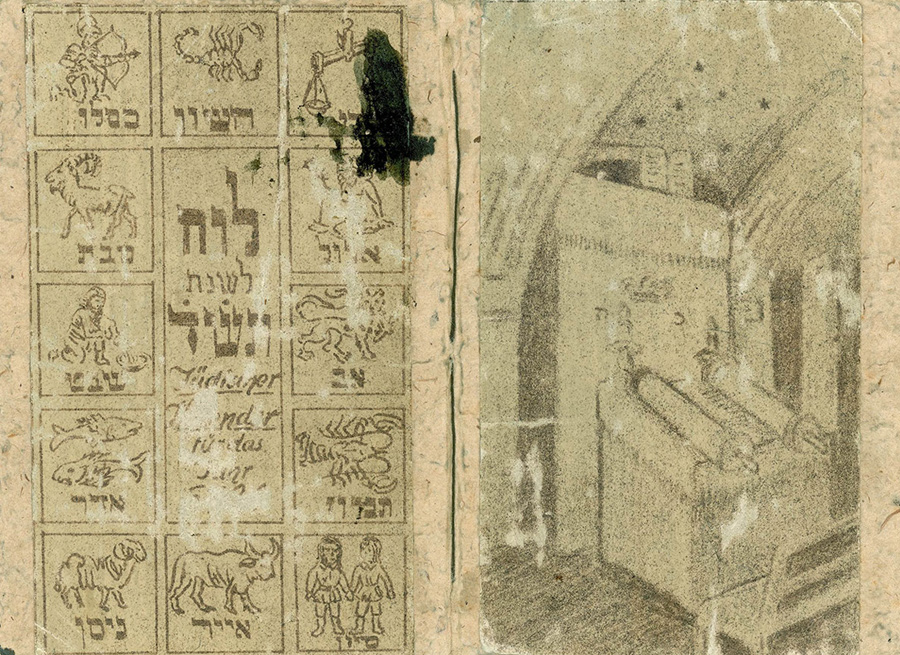 חשוון
כסלו
לוח
לשנת
אלול
טבת
Jüdischer
Kalender
für das
Jahr
אב
שבט
תמוז
אדר
סיון
אייר
ניסן